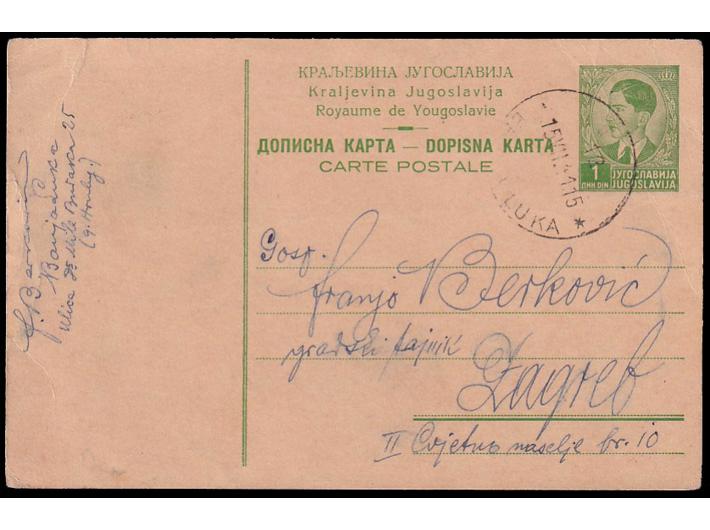 КРАЉЕВИНА ЈУГОСЛАВИЈА
Kraljevina Jugoslavija
Royaume de Yougoslavie
ДОПИСНА КАРТА — DOPISNA KARTA
CARTE POSTALE
1
ДИН DIN
ЈУГОСЛАВИЈА
JUGOSLAVIJA
LUKA *
Gosp.
Franjo Berković
gradski tajnik
Zagreb
II Cvjetno naselje br. 10
Banjaluka
Ulica Dr Mile Budaka 25